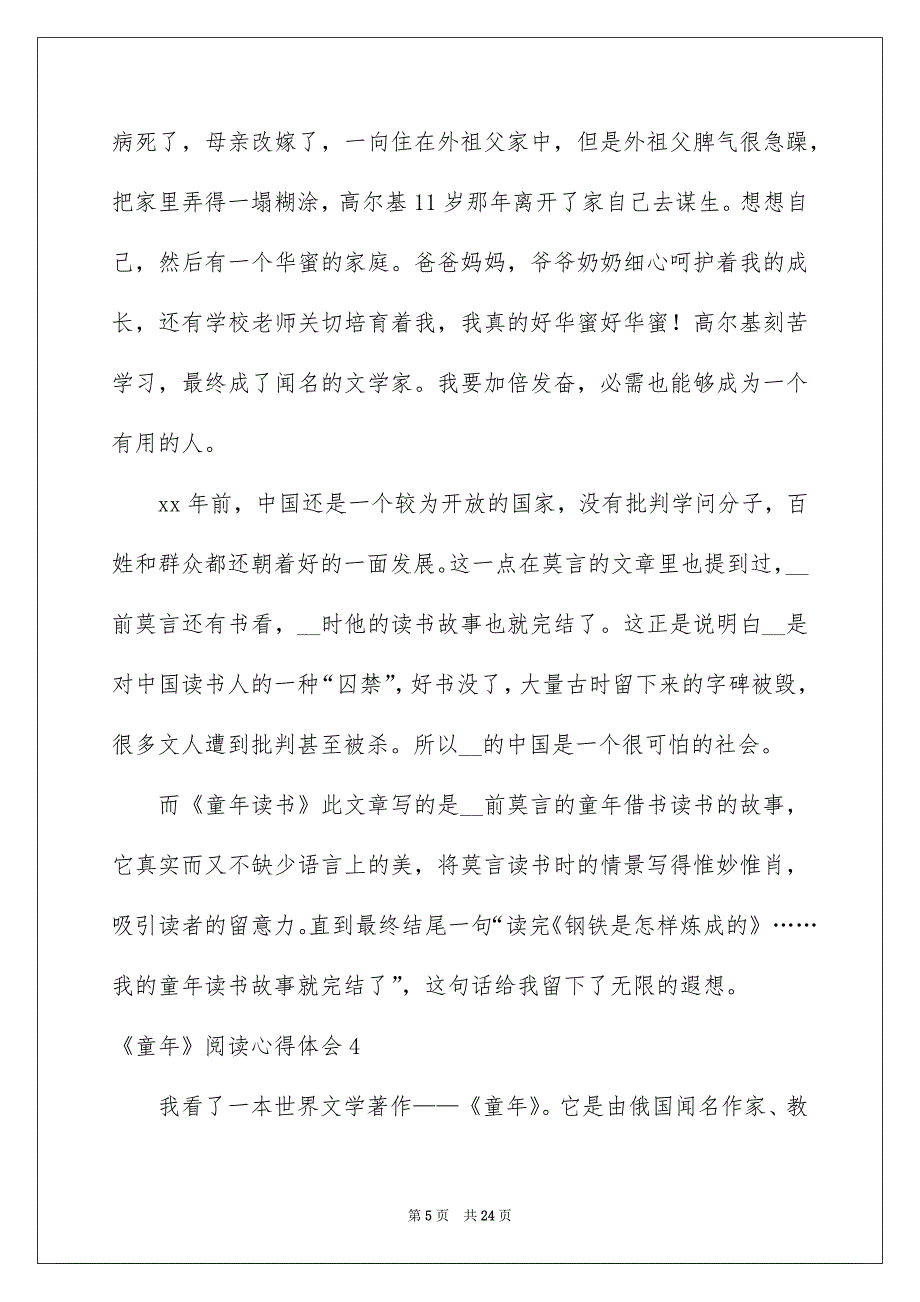 病死了，母亲改嫁了，一向住在外祖父家中，但是外祖父脾气很急躁，
把家里弄得一塌糊涂，高尔基 11 岁那年离开了家自己去谋生。想想自
己，然后有一个华蜜的家庭。爸爸妈妈，爷爷奶奶细心呵护着我的成
长，还有学校老师关切培育着我，我真的好华蜜好华蜜！高尔基刻苦
学习，最终成了闻名的文学家。我要加倍发奋，必需也能够成为一个
有用的人。
xx 年前，中国还是一个较为开放的国家，没有批判学问分子，百
姓和群众都还朝着好的一面发展。这一点在莫言的文章里也提到过，__
前莫言还有书看，__时他的读书故事也就完结了。这正是说明白__是
对中国读书人的一种“囚禁”，好书没了，大量古时留下来的字碑被毁，
很多文人遭到批判甚至被杀。所以__的中国是一个很可怕的社会。
而《童年读书》此文章写的是__前莫言的童年借书读书的故事，
它真实而又不缺少语言上的美，将莫言读书时的情景写得惟妙惟肖，
吸引读者的留意力。直到最终结尾一句“读完《钢铁是怎样炼成的》……
我的童年读书故事就完结了”，这句话给我留下了无限的遐想。
《童年》阅读心得体会 4
我看了一本世界文学著作——《童年》。它是由俄国闻名作家、教
第 5 页 共 24 页